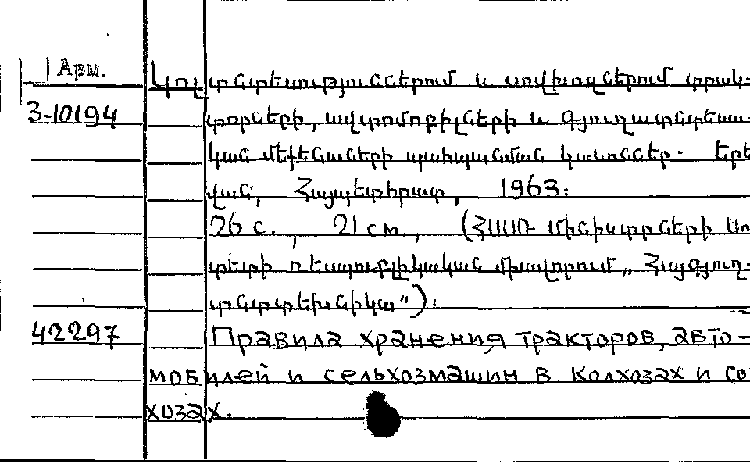 Арм.
Կոլտնտեսություններում և սովխոզներում տրակ-
3-10194 տորների, ավտոմոբիլների և գյուղատնտեսա-
կան մեքենաների պահպանման կանոններ. Երե
վան, Հայպետհրատ, 1963:
26 с., 21 см., (ՀՍՍՌ Մինիստրների Սո
վետի ռեսպուբլիկական միավորում „Հայգյուղ-
տնտտեխնիկա"):
42297 Правила хранения тракторов, авто-
мобилей и сельхозмашин в колхозах и со
хозах.